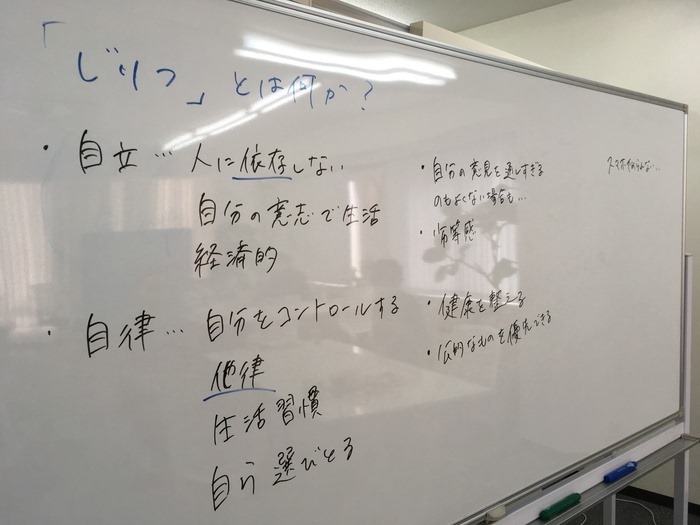 「じりつ」とは何か?
・自立… 人に依存しない
自分の意志で生活
経済的
・自分の意見を通しすぎる
のもよくない場合も…
・劣等感
・自律… 自分をコントロールする
他律
生活習慣
自ら選びとる
・健康を整える
・公的なものを優先できる